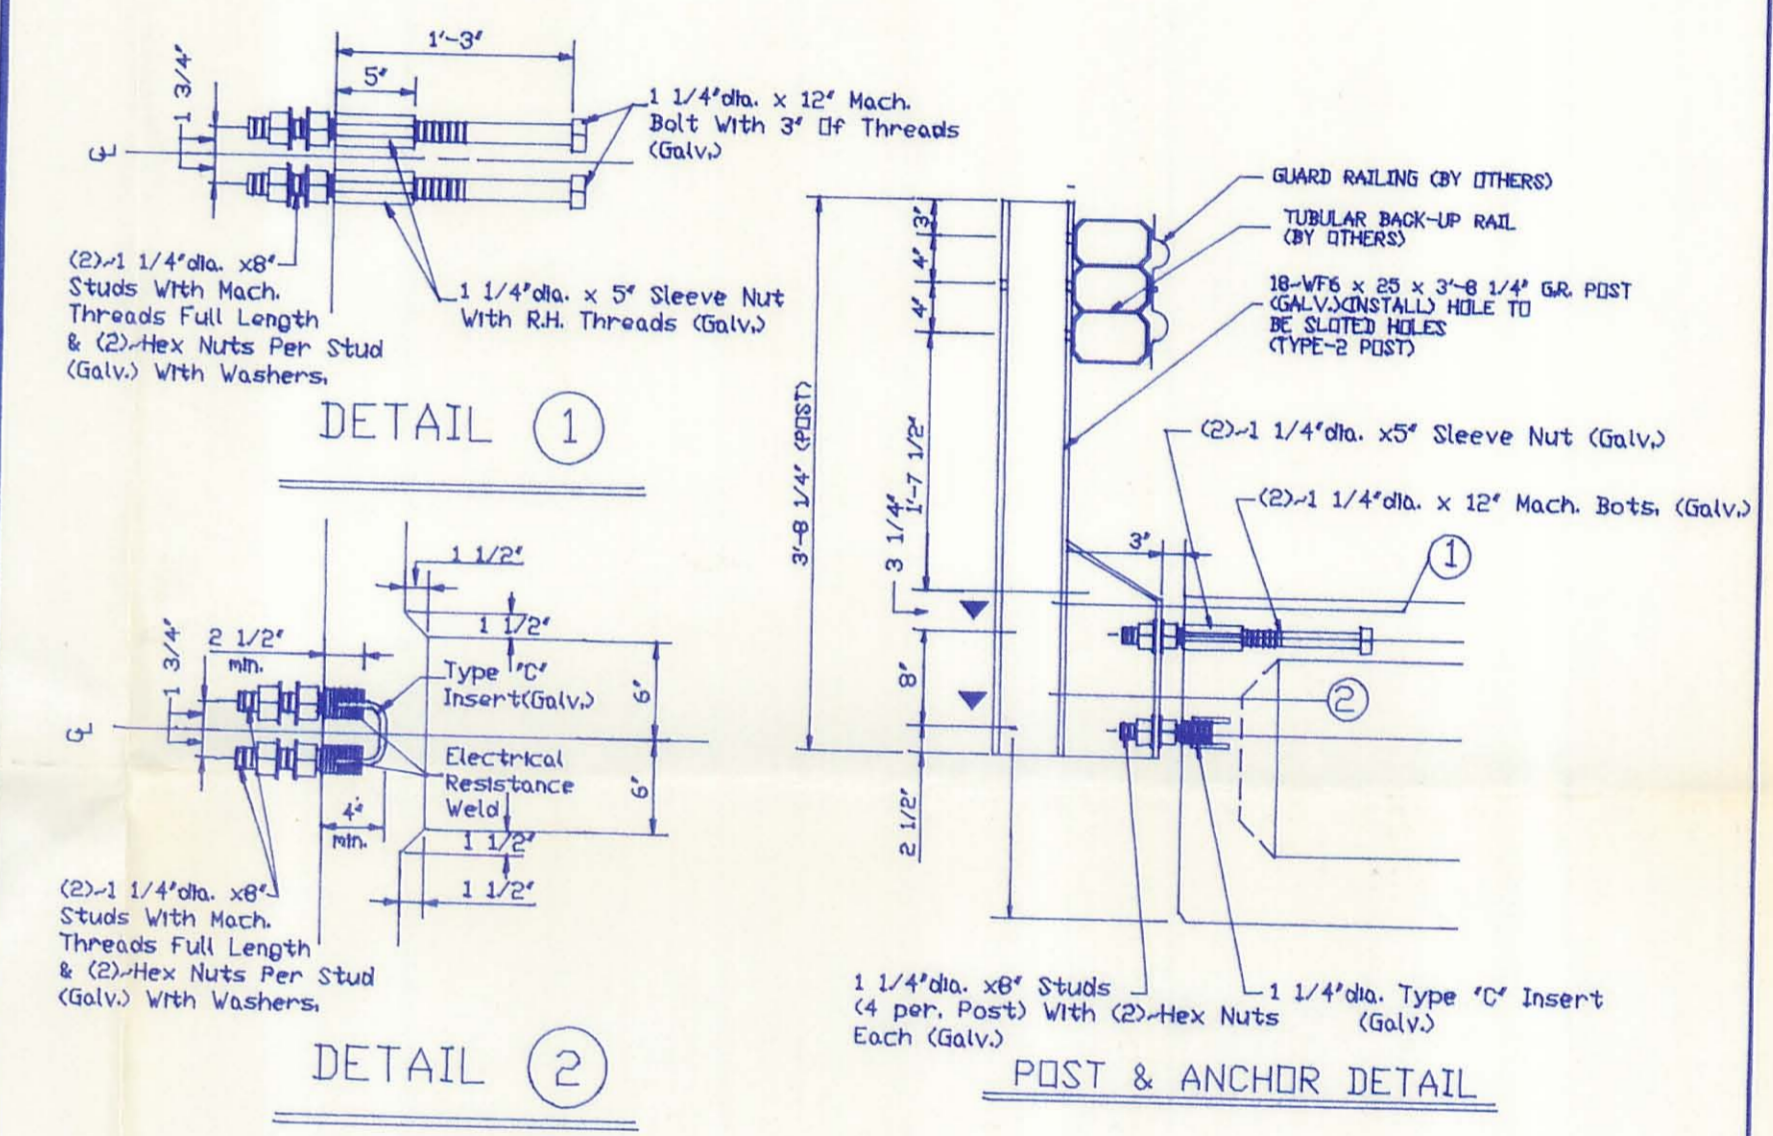 1'-3"
5"
1 3/4"
1 1/4"dia. x 12" Mach.
Bolt With 3" Of Threads
(Galv.)
℄
(2)~1 1/4"dia. x8"
Studs With Mach.
Threads Full Length
& (2)~Hex Nuts Per Stud
(Galv.) With Washers.
1 1/4"dia. x 5" Sleeve Nut
With R.H. Threads (Galv.)
DETAIL 1
1 1/2"
1 1/2"
2 1/2"
min.
1 3/4"
Type "C"
Insert(Galv.)
6"
℄
Electrical
Resistance
Weld
6"
4"
min.
1 1/2"
1 1/2"
(2)~1 1/4"dia. x8"
Studs With Mach.
Threads Full Length
& (2)~Hex Nuts Per Stud
(Galv.) With Washers.
DETAIL 2
GUARD RAILING (BY OTHERS)
TUBULAR BACK-UP RAIL
(BY OTHERS)
18~WF6 x 25 x 3'-8 1/4" G.R. POST
(GALV.)(INSTALL) HOLE TO
BE SLOTED HOLES
(TYPE-2 POST)
3"
4"
4"
3'-8 1/4" (POST)
1'-7 1/2"
3 1/4"
8"
2 1/2"
(2)~1 1/4"dia. x5" Sleeve Nut (Galv.)
(2)~1 1/4"dia. x 12" Mach. Bots. (Galv.)
3"
1
2
1 1/4"dia. x8" Studs
(4 per. Post) With (2)~Hex Nuts
Each (Galv.)
1 1/4"dia. Type "C" Insert
(Galv.)
POST & ANCHOR DETAIL